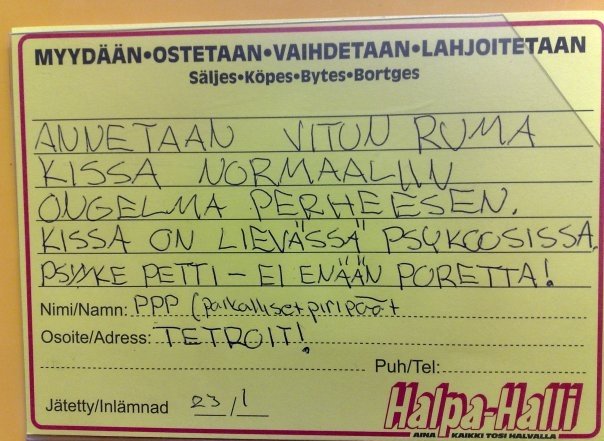 MYYDÄÄN•OSTETAAN•VAIHDETAAN•LAHJOITETAAN
Säljes•Köpes•Bytes•Bortges
ANNETAAN VITUN RUMA
KISSA NORMAALIIN
ONGELMA PERHEESEN.
KISSA ON LIEVÄSSÄ PSYKOOSISSA.
PETTI – EI ENÄÄN PORETTA!
Nimi/Namn: PPP (paikalliset piripäät
Osoite/Address: TETROIT!
Puh/Tel:
Jätetty/Inlämnad 23/1
Halpa-Halli
AINA KAIKKI TOSI HALVALLA